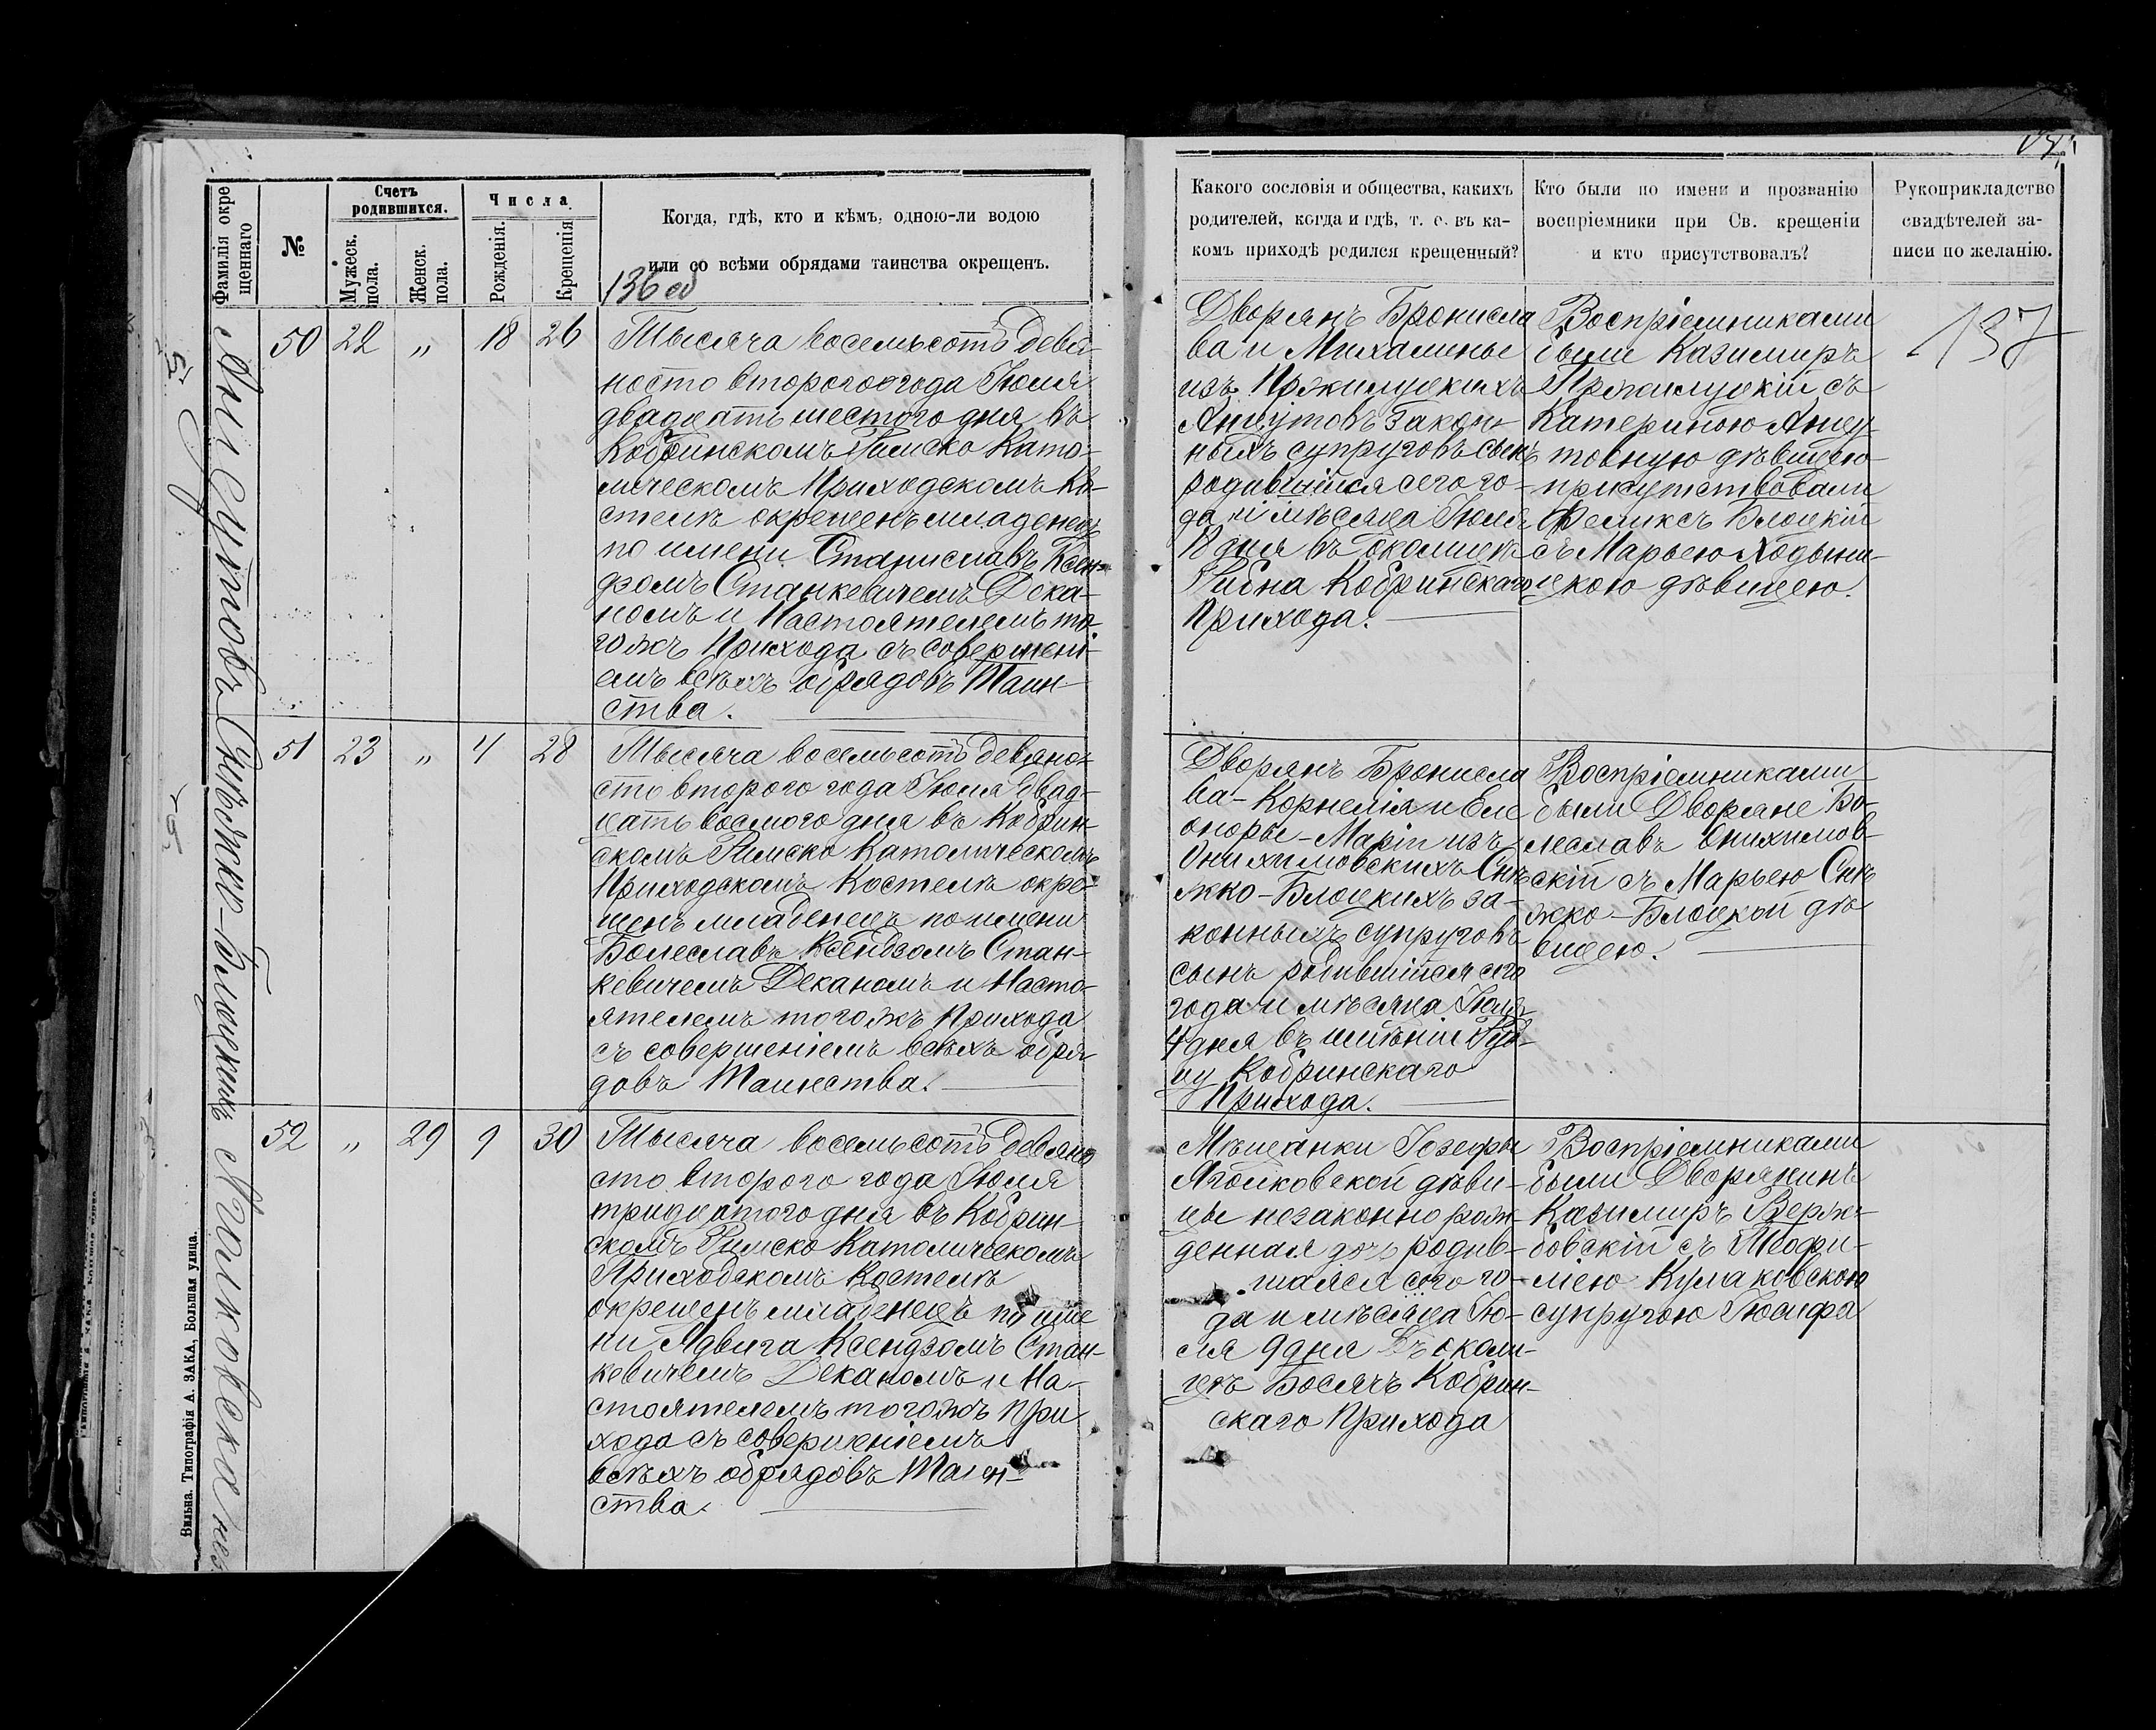 Фамилія окре
щеннаго
№
Счетъ
родившихся.
Мужеск.
пола.
Женск.
пола.
Числа
Рожденія.
Крещенія
Когда, гдѣ, кто и кѣмъ, одною-ли водою
или со всѣми обрядами таинства окрещенъ.
136 об
Какого сословія и общества, какихъ
родителей, когда и гдѣ, т. е. въ ка-
комъ приходѣ родился крещенный?
Кто были по имени и прозванію
воспріемники при Св. крещеніи
и кто присутствовалъ?
Рукоприкладство
свидѣтелей за-
писи по желанію.
137
50 22 „ 18 26
Тысяча восемьсотъ девя-
носто второго года Іюля
двадцать шестого дня въ
Кобринскомъ Римско Като-
лическомъ Приходскомъ Ко-
стелѣ окрещенъ младенецъ
по имени Станиславъ Ксен-
дзомъ Станкевичемъ Дека-
номъ и Настоятелемъ то-
гожъ Прихода съ совершені-
емъ всѣхъ обрядовъ Таин-
ства.
Дворянъ Бронисла
ва и Михалины
изъ Пржилуцкихъ
Анцутовъ закон-
ныхъ супруговъ сынъ
родившійся сего го-
да и мѣсяца Іюля
18 дня въ околицѣ
Рибна Кобринскаго
Прихода.
Воспріемниками
были Казимиръ
Пржилуцкій съ
Катериною Анцу-
товную дѣвицею
присутствовали
Феликсъ Блоцкій
съ Марьею Ходыни-
цкою дѣвицею.
Анцутовъ
51 23 „ 4 28
Тысяча восемьсотъ девяно-
сто второго года Іюля двад-
цать восмого дня въ Кобрин-
скомъ Римско Католическомъ
Приходскомъ Костелѣ окре-
щенъ младенецъ по имени
Болеславъ Ксендзомъ Стан-
кевичемъ Деканомъ и Насто-
ятелемъ тогожъ Прихода
съ совершеніемъ всѣхъ обря-
довъ Таинства.
Дворянъ Бронисла
ва-Корнелія и Еле
оноры-Маріи изъ
Онихимовскихъ Снѣ
жко-Блоцкихъ за-
конныхъ супруговъ
сынъ родившійся сего
года и мѣсяца Іюля
4 дня въ имѣніи
Кобринскаго
Прихода.
Воспріемниками
были Дворяне Бо-
леславъ Онихимов-
скій съ Марьею Снѣ
жко-Блоцкой дѣ
вицею.
Снѣжко-Блоцкихъ
52 „ 29 9 30
Тысяча восемьсотъ девяно
сто второго года Іюля
тридцатого дня въ Кобрин-
скомъ Римско Католическомъ
Приходскомъ Костелѣ
окрещенъ младенецъ по име
ни Ядвига Ксендзомъ Стан-
кевичемъ Деканомъ и На-
стоятелемъ тогожъ При
хода съ совершеніемъ
всѣхъ обрядовъ Таин-
ства.
Мѣщанки Іозефы
дѣви-
цы незаконно рож-
денная дочь родив-
шаяся сего го-
да и мѣсяца Ію-
ля 9 дня въ околи-
цѣ Босячъ Кобрин-
скаго Прихода
Воспріемниками
были Дворянинъ
Казимиръ Верж-
бовскій съ Теофи-
лією Кулаковскою
супругою Іосифа
Вильна. Типографія А. ЗАКА, Большая улица.